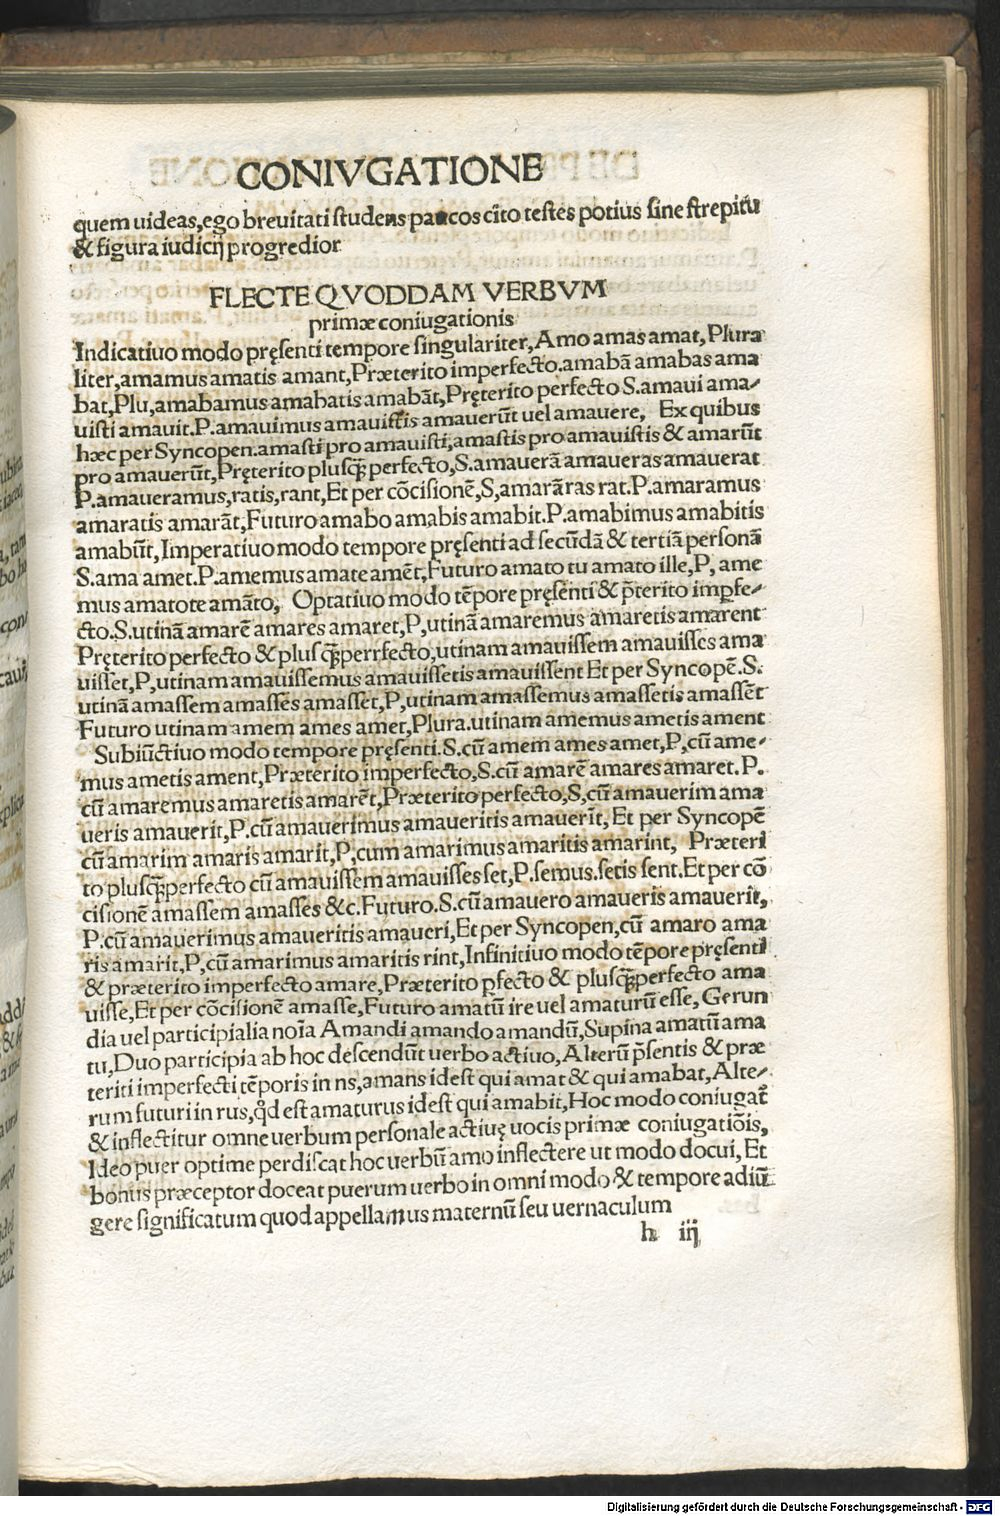 CONIVGATIONE
quem uideas,ego breuitati studens paucos cito testes potius sine strepitu
& figura iudicij progredior
FLECTE QVODDAM VERBVM
primæ coniugationis
Indicatiuo modo pręsenti tempore singulariter,Amo amas amat,Plura
liter,amamus amatis amant,Præterito imperfecto.amabā amabas ama
bat,Plu,amabamus amabatis amabāt,Pręterito perfecto S.amaui ama-
uisti amauit.P.amauimus amauistis amauerūt uel amauere, Ex quibus
hæc per Syncopen.amasti pro amauisti,amastis pro amauistis & amarūt
pro amauerūt,Pręterito plusq̄ perfecto,S.amauerā amaueras amauerat
P.amaueramus,ratis,rant,Et per cōcisionē,S,amarā ras rat.P.amaramus
amaratis amarāt,Futuro amabo amabis amabit.P.amabimus amabitis
amabūt,Imperatiuo modo tempore pręsenti ad secūdā & tertiā personā
S.ama amet.P.amemus amate amēt,Futuro amato tu amato ille,P, ame
mus amatote amāto, Optatiuo modo tēpore pręsenti & p̄terito imꝑfe-
cto.S.utinā amarē amares amaret,P,utinā amaremus amaretis amarent
Pręterito perfecto & plusq̄perrfecto,utinam amauissem amauisses ama
uisset,P,utinam amauissemus amauissetis amauissent Et per Syncopē.S.
utinā amassem amasses amasset,P,utinam amassemus amassetis amassēt
Futuro utinam amem ames amet,Plura.utinam amemus ametis ament
Subiūctiuo modo tempore pręsenti.S.cū amem ames amet,P,cū ame-
mus ametis ament,Præterito imperfecto,S.cū amarē amares amaret.P.
cū amaremus amaretis amarēt,Præterito perfecto,S,cū amauerim ama
ueris amauerit,P.cū amauerimus amaueritis amauerīt, Et per Syncopē
cū amarim amaris amarit,P,cum amarimus amaritis amarint, Præteri
to plusq̄perfecto cū amauissem amauisses set,P.semus.setis sent.Et per cō
cisionē amassem amasses &c.Futuro.S.cū amauero amaueris amauerit,
P.cū amauerimus amaueritis amaueri,Et per Syncopen,cū amaro ama
ris amarit,P,cū amarimus amaritis rint,Infinitiuo modo tēpore pręsenti
& præterito imperfecto amare,Præterito ꝑfecto & plusq̄perfecto ama
uisse,Et per cōcisionē amasse,Futuro amatū ire uel amaturū esse, Gerun
dia uel participialia noīa Amandi amando amandū,Supina amatū ama
tu,Duo participia ab hoc descendūt uerbo actiuo,Alterū p̄sentis & præ
teriti imperfecti tēporis in ns,amans idest qui amat & qui amabat,Alte-
rum futuri in rus,qd̓ est amaturus idest qui amabit,Hoc modo coniugat̄
& inflectitur omne uerbum personale actiuę uocis primæ coniugatiōis,
Ideo puer optime perdiscat hoc uerbū amo inflectere ut modo docui, Et
bonus præceptor doceat puerum uerbo in omni modo & tempore adiū
gere significatum quod appellamus maternū seu uernaculum
h iij
Digitalisierung gefördert durch die Deutsche Forschungsgemeinschaft - DFG